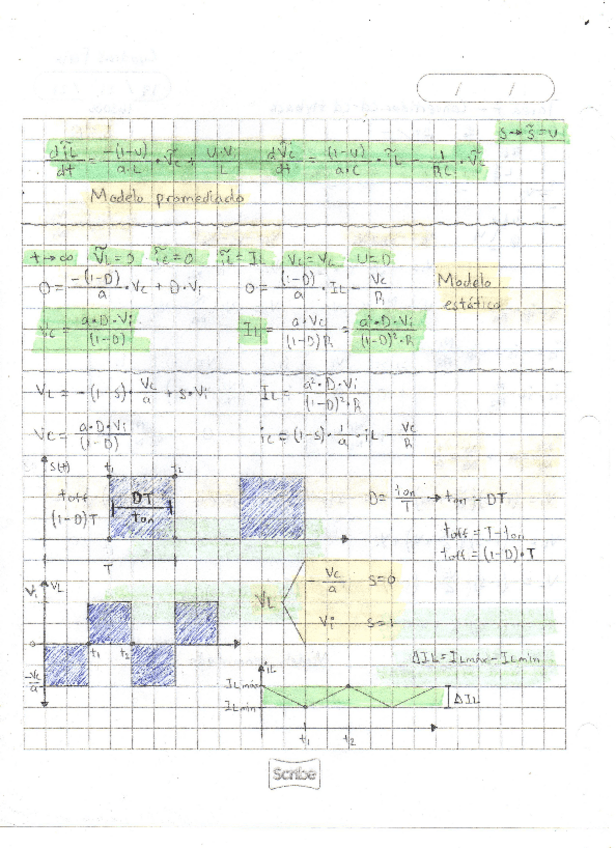 S → s̃ = U
dĩL/dt = -(1-U)/(a·L) · ṽc + U·Vi/L    dṽc/dt = (1-U)/(a·C) · ĩL - 1/(RC) · ṽc
Modelo promediado
t→∞  ṽL=0  ĩc=0  ĩL=IL  Vc=Vc  U=D
0 = -(1-D)/a · Vc + D·Vi    0 = (1-D)/a · IL - Vc/R    Modelo
estático
Vc = a·D·Vi/(1-D)    IL = a·Vc/((1-D)R) = a²·D·Vi/((1-D)²·R)
VL = -(1-s)·Vc/a + s·Vi    IL = a²·D·Vi/((1-D)²·R)
Vc = a·D·Vi/(1-D)    ic = (1-s)·1/a·iL - Vc/R
S(t)  t1  t2
toff  DT  D = ton/T → ton = DT
(1-D)T  ton
toff = T-ton
toff = (1-D)·T
T
Vi  VL
-Vc/a  S=0
VL
Vi  S=1
0  t1  t2
ΔIL = ILmáx - ILmin
-Vc/a
iL
ILmáx
ILmin  ΔIL
t1  t2
Scribe